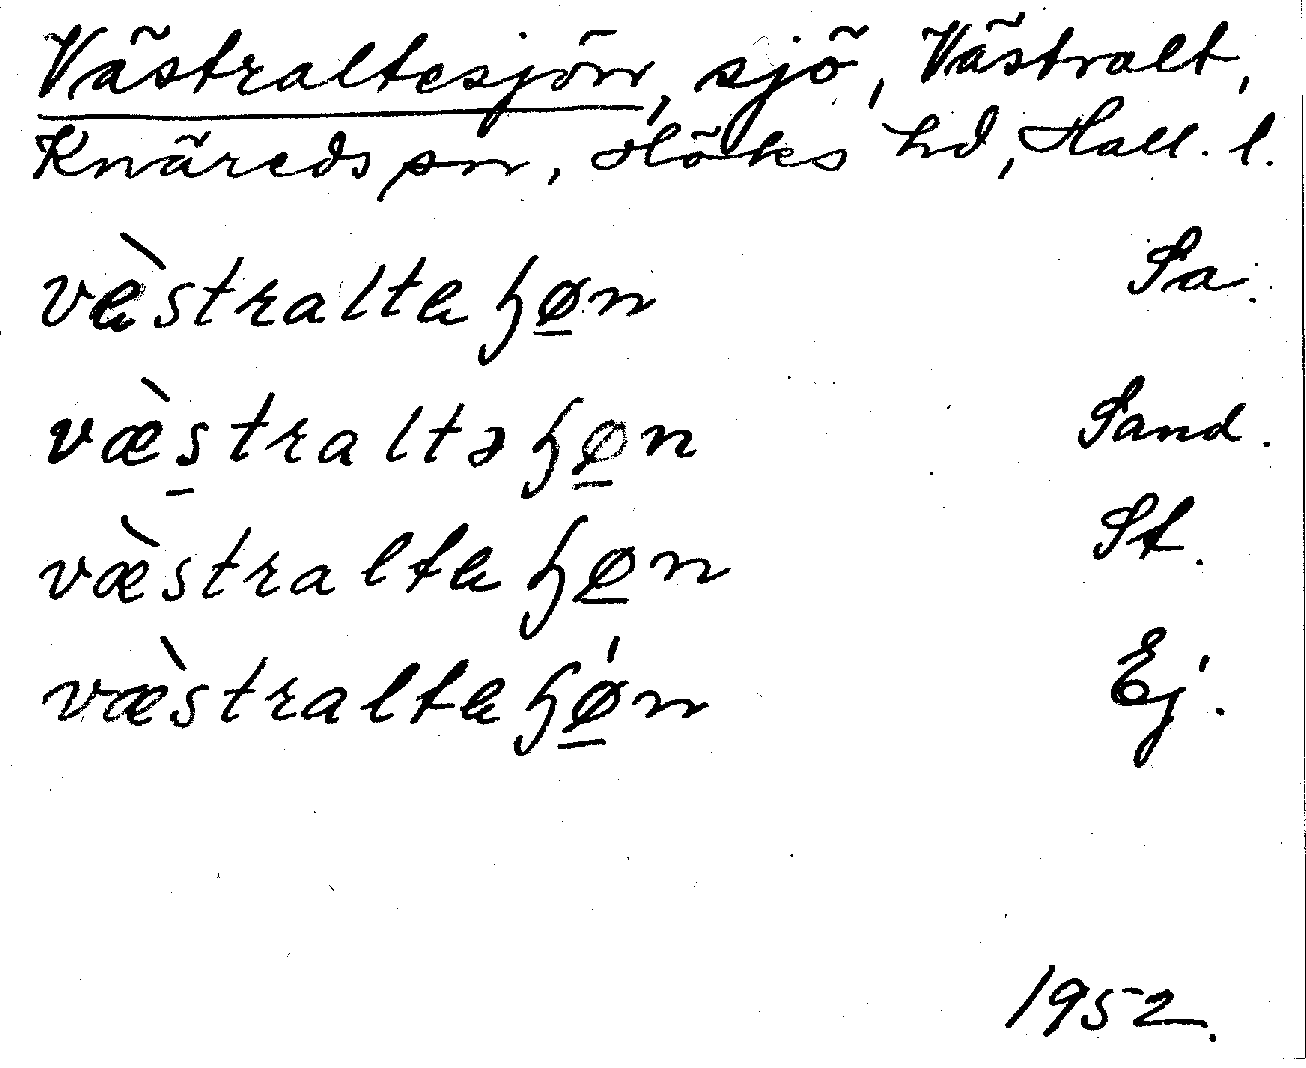 Västraltesjön, sjö, Västralt,
Knäreds sn, Höks hd, Hall. l.
væ̀straltaɧø̲n Sa.
væ̀s̲traltəɧø̲n Sand.
væ̀straltaɧø̲n St.
væ̀straltaɧǿ̲n Ej.
1952.